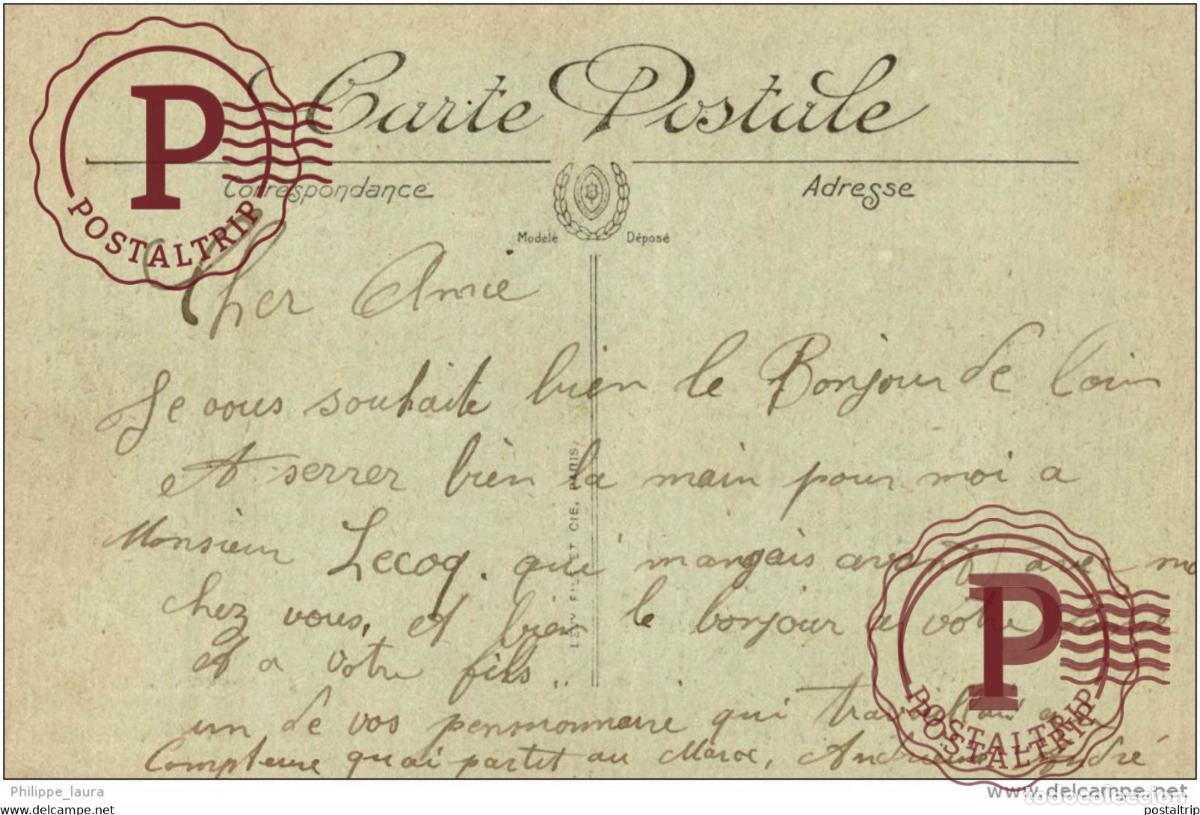 Carte Postale
Correspondance
Adresse
Modèle Déposé
Cher Amie
Je vous souhaite bien le Bonjour de loin
et serrer bien la main pour moi a
Monsieur Lecoq. qui mangais avant avec
chez vous, et bien le bonjour a votre
et a votre fils..
un de vos pensionnaire qui
Compteure qu ai partit au Maroc, André
LEVY FILS ET CIE, PARIS
P
POSTALTRIP
P
POSTALTRIP
Philippe_laura
www.delcampe.net
www.delcampe.net
todocoleccion
postaltrip